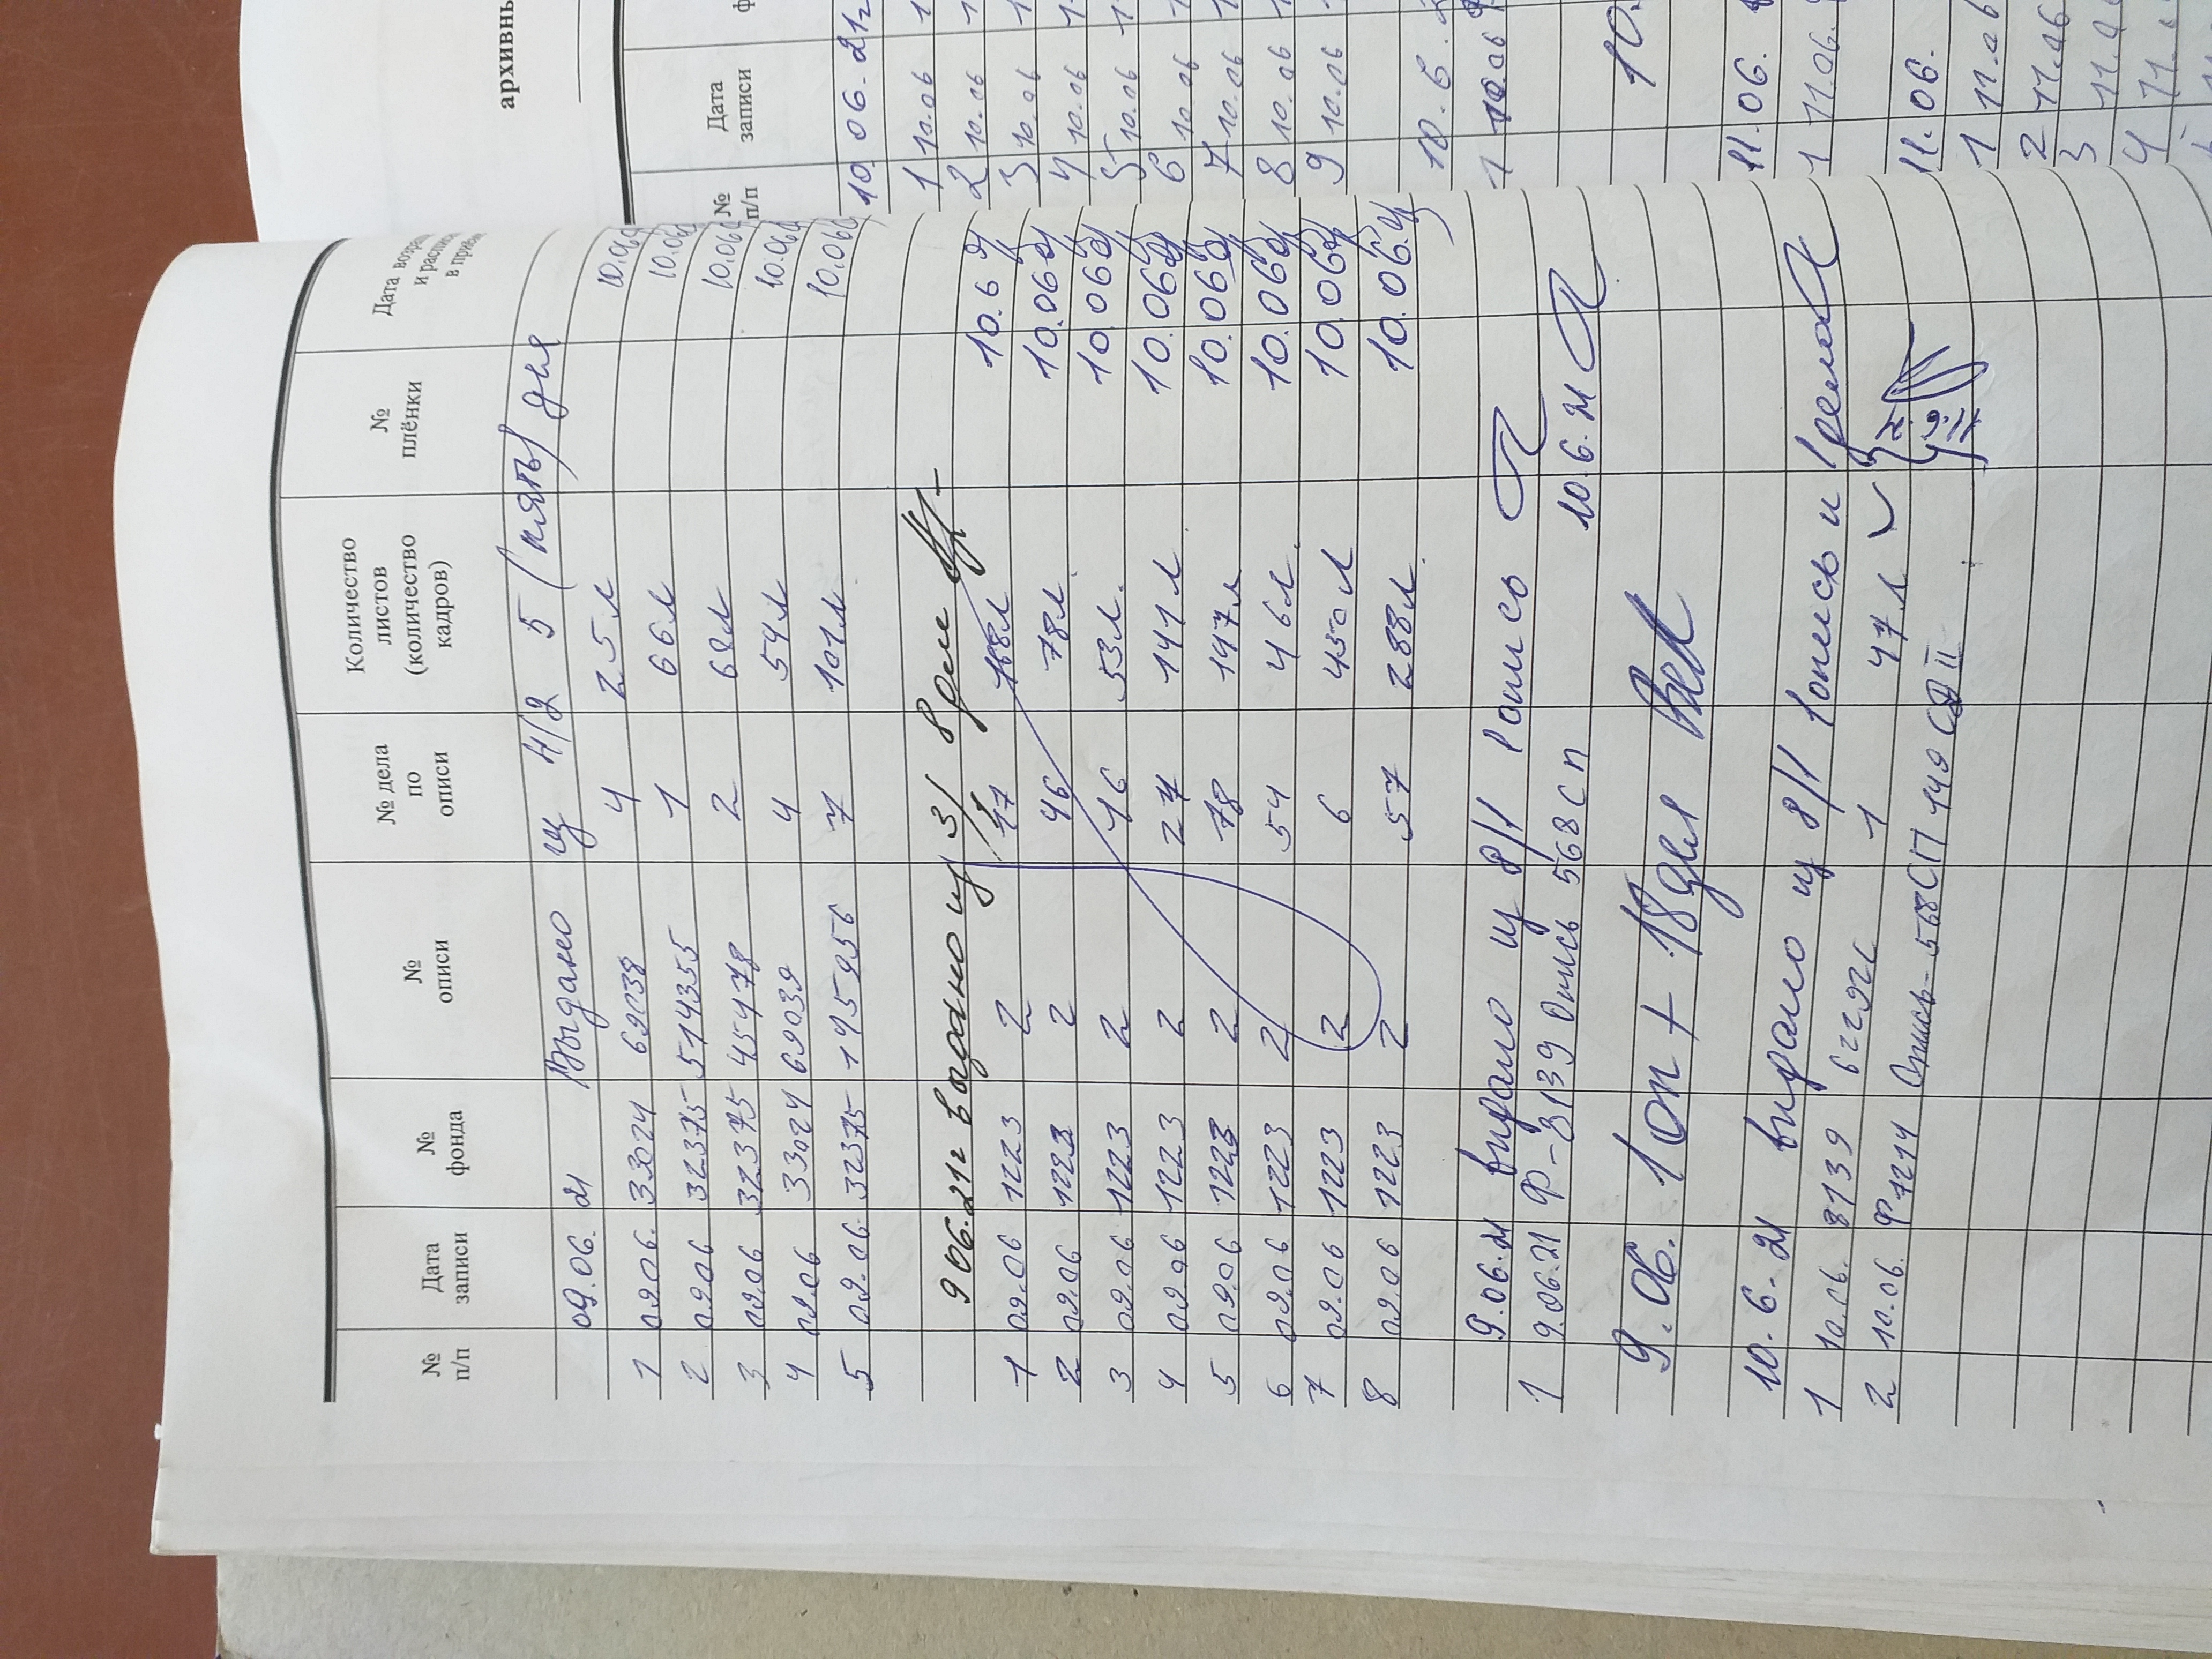 № п/п Дата записи № фонда № описи № дела по описи Количество листов (количество кадров) № плёнки Дата и в
09.06.21 Выдано из н/2 5 (пять) дел
1 09.06. 33024 69038 4 25л 10.06
2 09.06 32375 514355 1 66л 10.06
3 09.06 32375 45478 2 68л 10.06
4 09.06 33024 69039 4 54л 10.06
5 09.06. 32375 195956 7 101л 10.06
9 06.21г Выдано из 3/ 8
1 09.06 1223 2 17 10.6
2 09.06 1223 2 46 78л 10.06
3 09.06 1223 2 16 53л. 10.06
4 09.06 1223 2 141л 10.06
5 09.06 1223 2 78 147л 10.06
6 09.06 1223 2 54 46л 10.06
7 09.06 1223 2 6 450л 10.06
8 09.06 1223 2 57 288л 10.06.
9.06.21 выдано из 8/1 1 опись
1 9.06.21 Ф-8139 Опись 568 СП 10.6.21
9.06. 1 оп + 18 дел
10.6.21 выдано из 8/1 1 опись и
1 10.06. 8139 1 47л
2 10.06. Ф 1214 Опись-568СП 449 СД
архивны
№ п/п Дата записи
10 06.21г
1 10.06
2 10.06
3 10.06
4 10.06
5 10.06
6 10.06
7 10.06
8 10.06
9 10.06
10.6.
1 10.06
10.
11.06.
1 11.06.
11.06.
1 11.06
2 11.06
3 11.0
4 11.